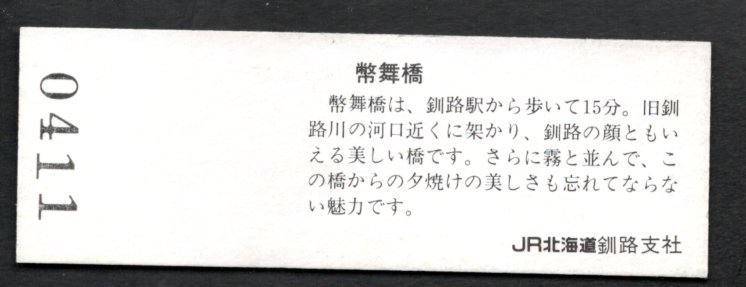 0411
幣舞橋
幣舞橋は、釧路駅から歩いて15分。旧釧
路川の河口近くに架かり、釧路の顔ともい
える美しい橋です。さらに霧と並んで、こ
の橋からの夕焼けの美しさも忘れてならな
い魅力です。
JR北海道釧路支社